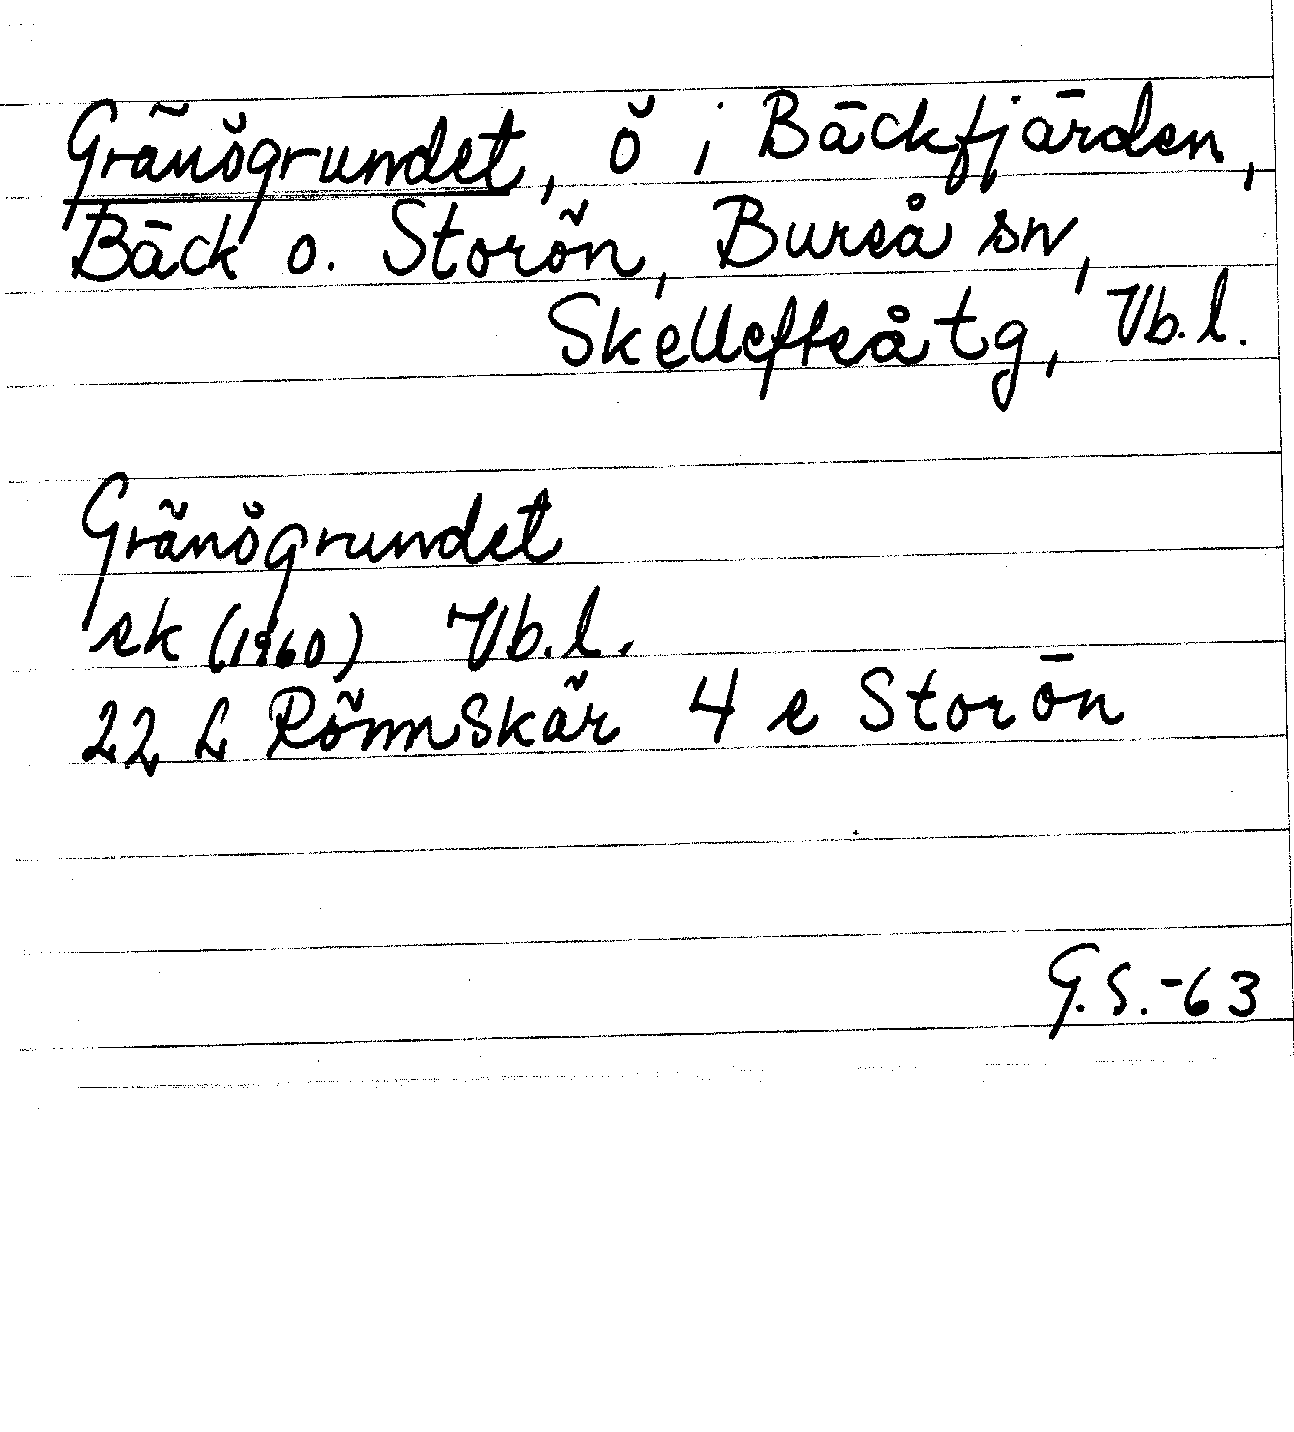 Gränögrundet, ö i Bäckfjärden,
Bäck o. Storön, Bureå sn,
Skellefteå tg, Vb. l.
Gränögrundet
ek (1960) Vb. l.
22 L Rönnskär 4 e Storön
G.S.-63